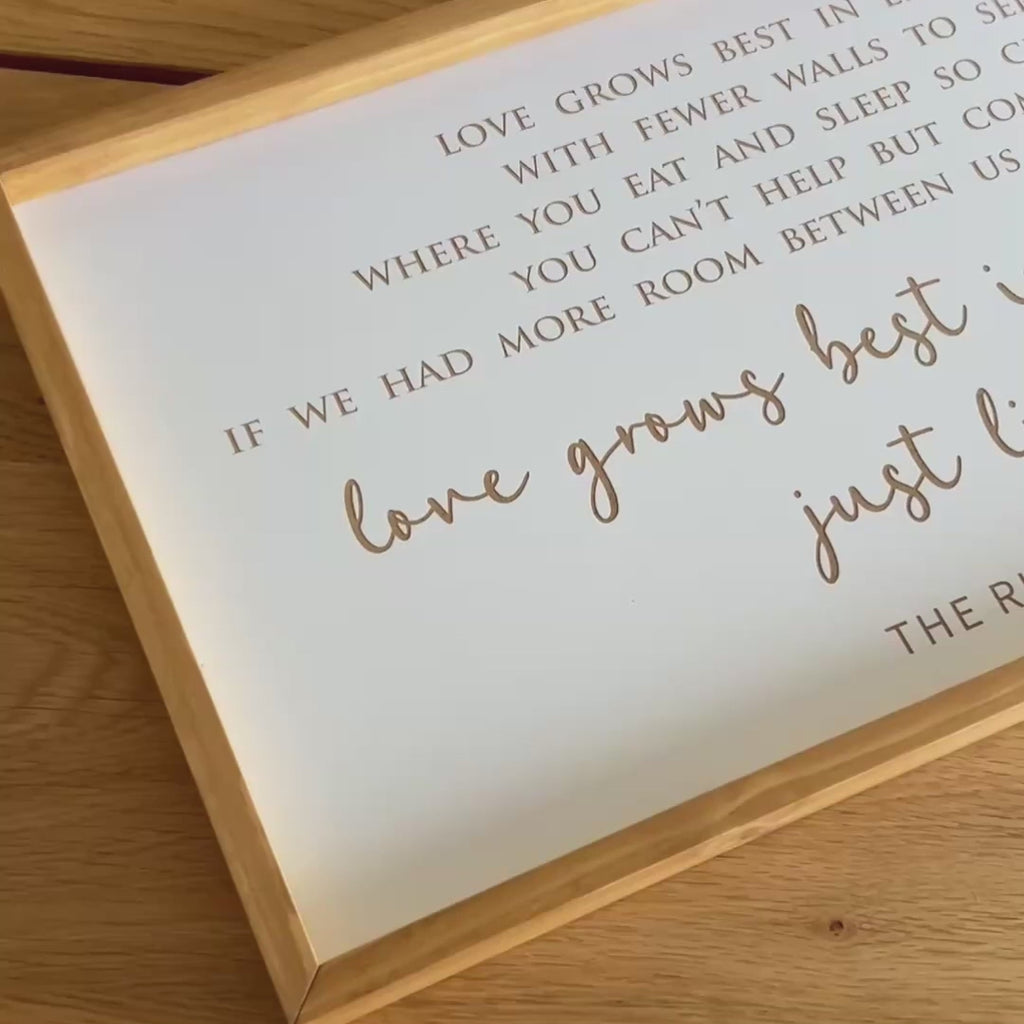 LOVE GROWS BEST IN
WITH FEWER WALLS TO
WHERE YOU EAT AND SLEEP SO
YOU CAN'T HELP BUT
IF WE HAD MORE ROOM BETWEEN US
love grows best
just
THE